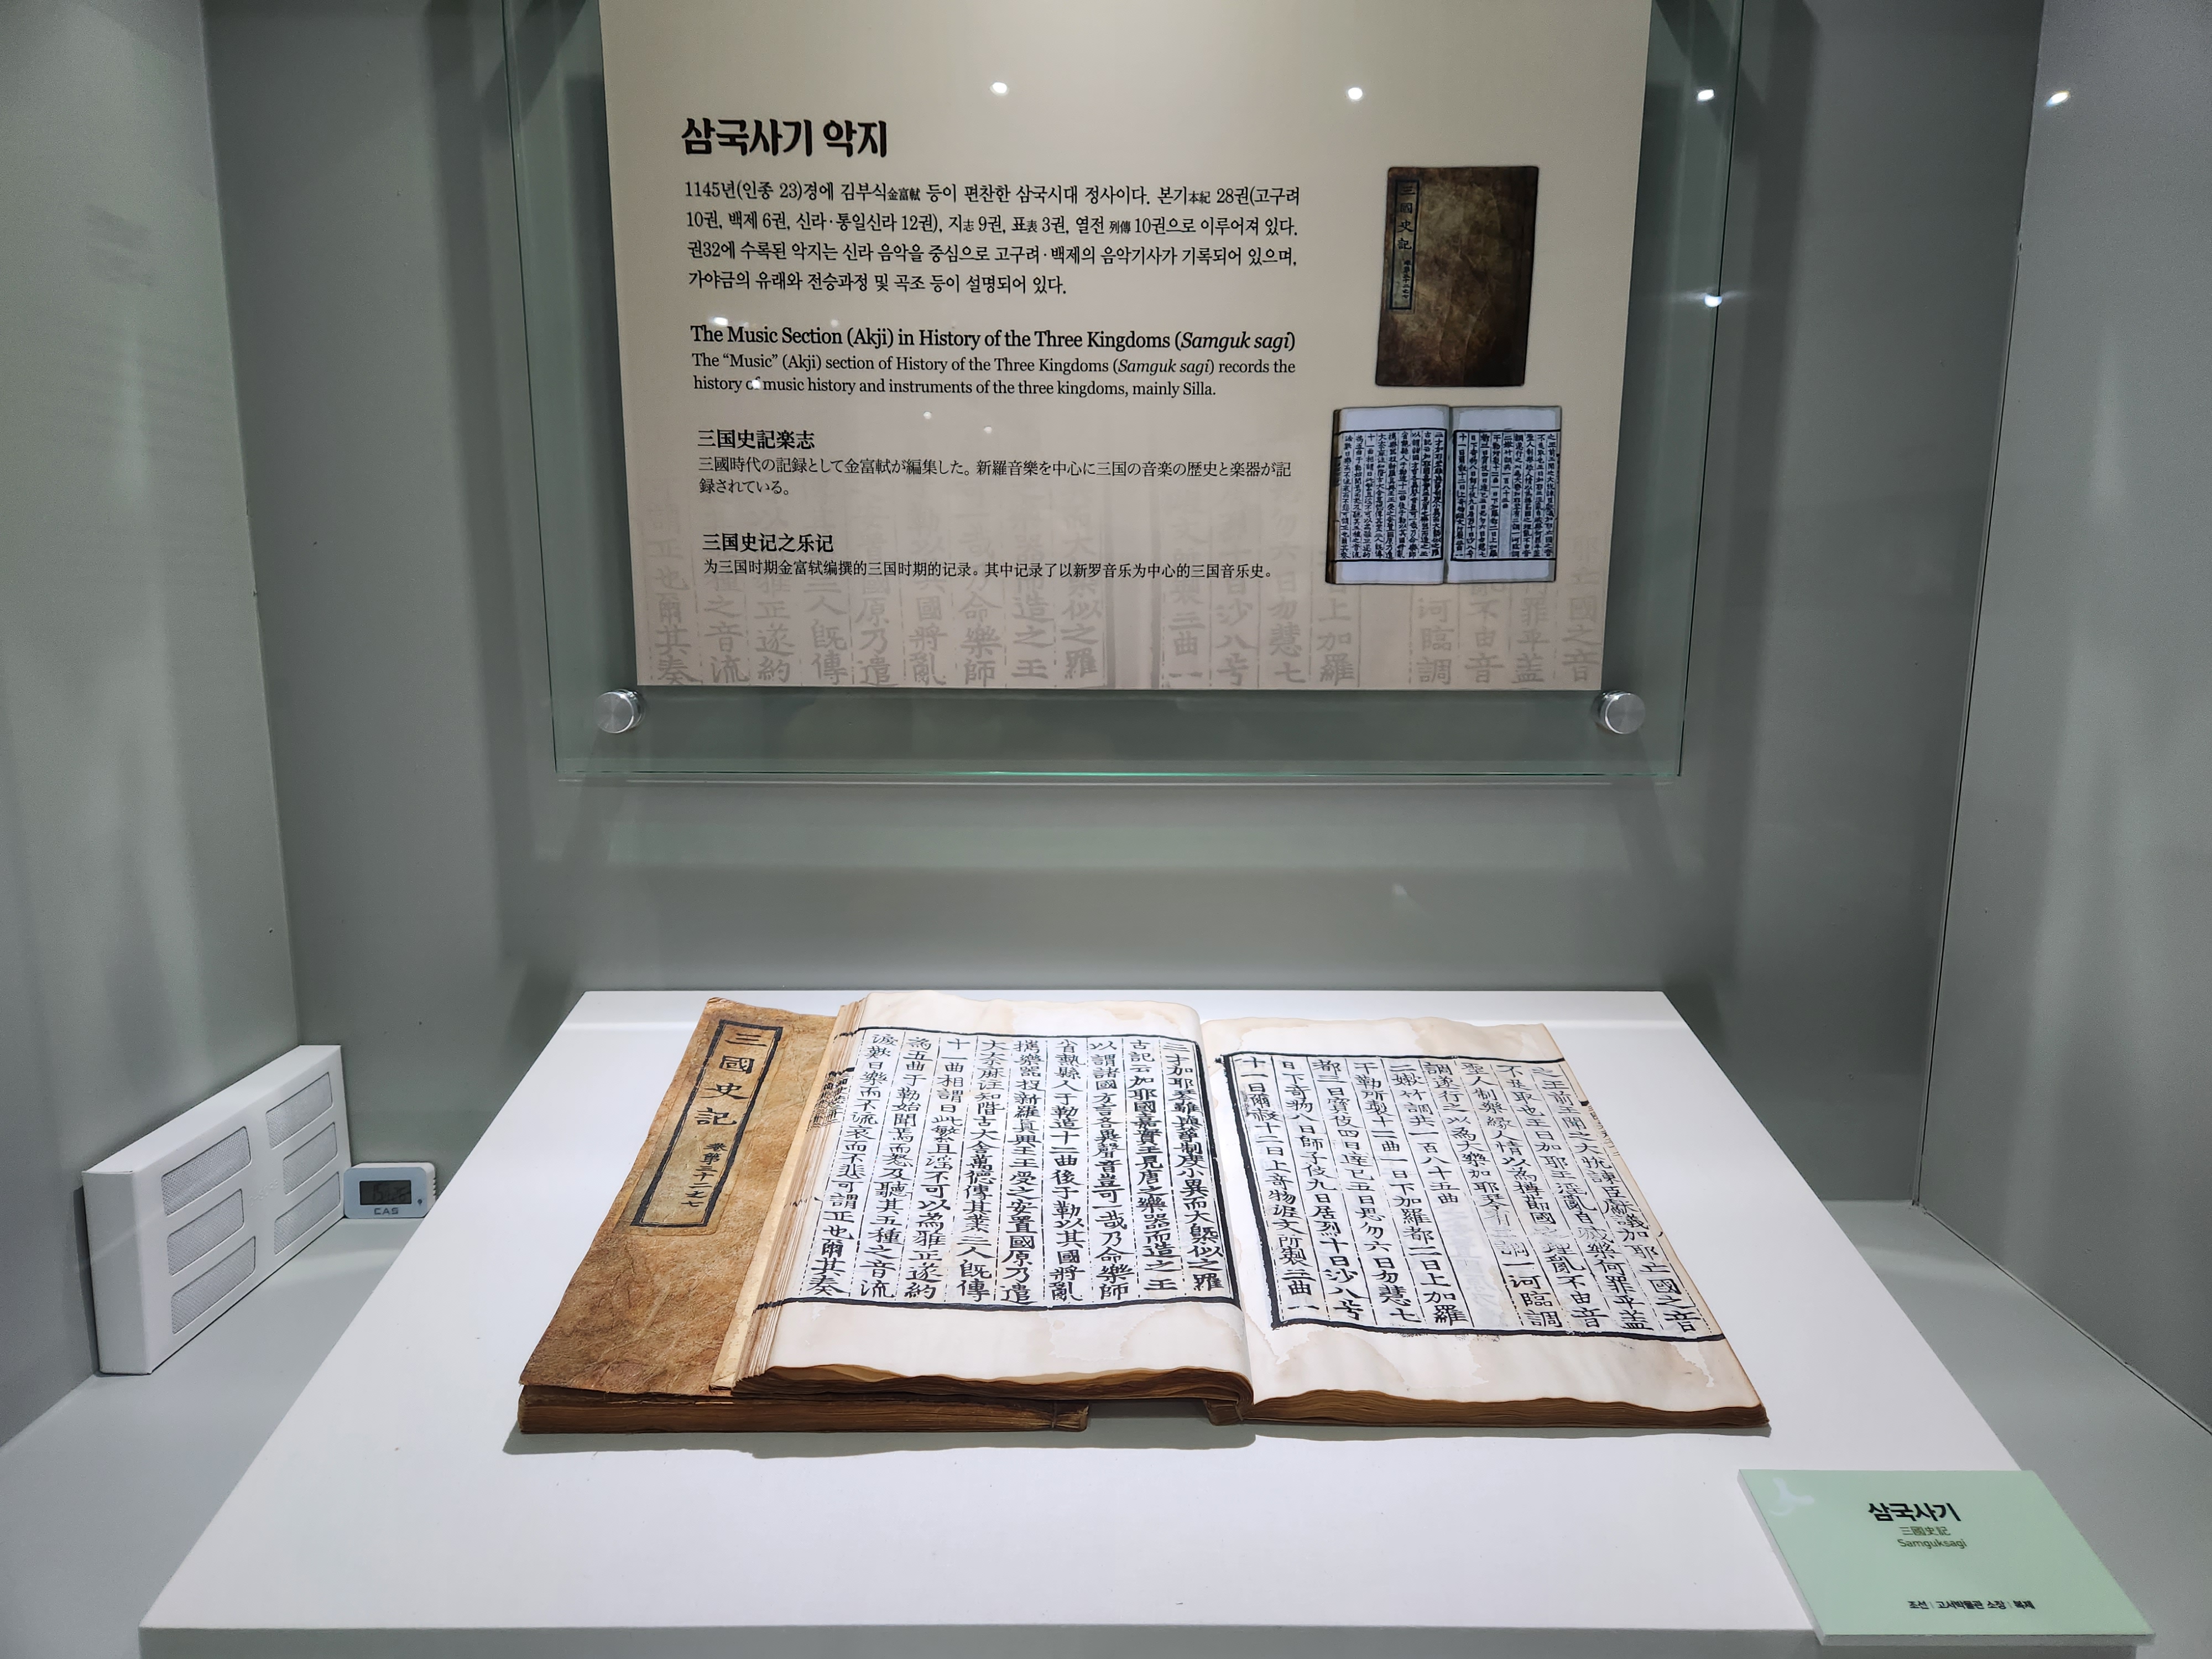 삼국사기 악지
1145년(인종 23)경에 김부식金富軾 등이 편찬한 삼국시대 정사이다. 본기本紀 28권(고구려
10권, 백제 6권, 신라·통일신라 12권), 지志 9권, 표表 3권, 열전 列傳 10권으로 이루어져 있다.
권32에 수록된 악지는 신라 음악을 중심으로 고구려·백제의 음악기사가 기록되어 있으며,
가야금의 유래와 전승과정 및 곡조 등이 설명되어 있다.
The Music Section (Akji) in History of the Three Kingdoms (Samguk sagi)
The “Music” (Akji) section of History of the Three Kingdoms (Samguk sagi) records the
history of music history and instruments of the three kingdoms, mainly Silla.
三国史記楽志
三國時代の記録として金富軾が編集した。新羅音樂を中心に三国の音楽の歴史と楽器が記
録されている。
三国史记之乐记
为三国时期金富轼编撰的三国时期的记录。其中记录了以新罗音乐为中心的三国音乐史。
三國史記
三國史記 卷第三十二之七
之王前王聞之大悅諫臣獻議加耶亡國之音
不足取也王曰加耶王淫亂自滅樂何罪乎盖
聖人制樂緣人情以為撙節國之理亂不由音
調遂行之以為大樂加耶琴有二調一河臨調
二嫩竹調共一百八十五曲
于勒所製十二曲一曰下加羅都二曰上加羅
都三曰寶伎四曰達已五曰思勿六曰勿慧七
曰下奇物八曰師子伎九曰居烈十曰沙八兮
十一曰爾赦十二曰上奇物泥文所製三曲一
三才加耶琴雖與箏制度小異而大槩似之羅
古記云加耶國嘉實王見唐之樂器而造之王
以謂諸國方言各異聲音豈可一哉乃命樂師
省熱縣人于勒造十二曲後于勒以其國將亂
携樂器投新羅眞興王王受之安置國原乃遣
大大奈麻注知階古大舍萬德傳其業三人旣傳
十一曲相謂曰此繁且淫不可以為雅正遂約
為五曲于勒始聞焉而怒及聽其五種之音流
淚歎曰樂而不流哀而不悲可謂正也爾其奏
CAS
삼국사기
三國史記
Samguksagi
조선 | 고서박물관 소장 | 복제